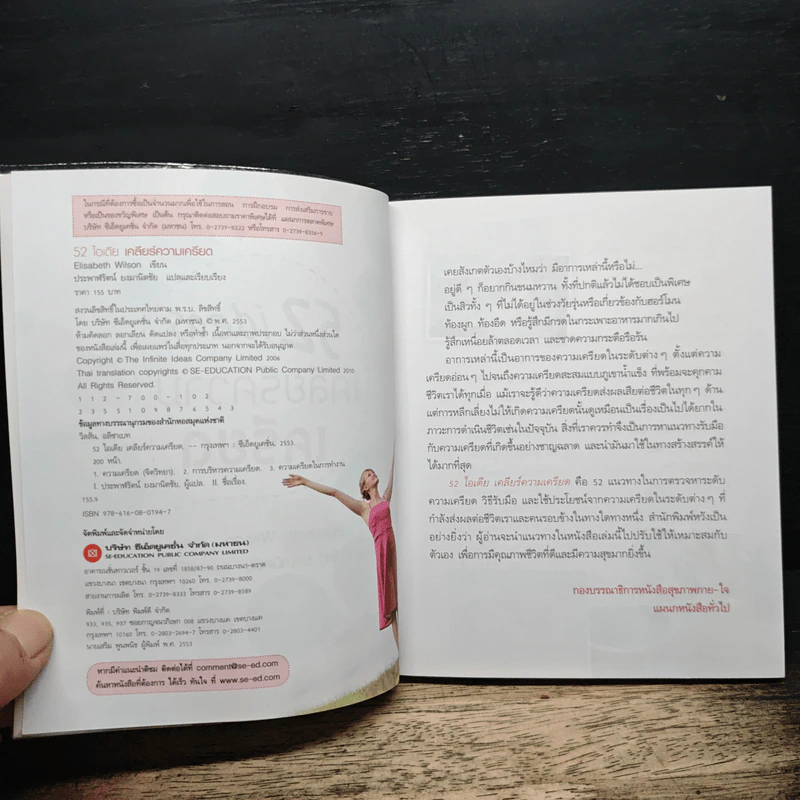 ในกรณีที่ต้องการซื้อเป็นจำนวนมากเพื่อใช้ในการสอน การฝึกอบรม การส่งเสริมการขาย
หรือเป็นของขวัญพิเศษ เป็นต้น กรุณาติดต่อสอบถามราคาพิเศษได้ที่ แผนกการตลาดพิเศษ
บริษัท ซีเอ็ดยูเคชั่น จำกัด (มหาชน) โทร. 0-2739-8222 หรือโทรสาร 0-2739-8356-9
52 ไอเดีย เคลียร์ความเครียด
Elisabeth Wilson เขียน
ประาพฬรัตน์ ยงมานิตชัย แปลและเรียบเรียง
ราคา 155 บาท
สงวนลิขสิทธิ์ในประเทศไทยตาม พ.ร.บ. ลิขสิทธิ์
โดย บริษัท ซีเอ็ดยูเคชั่น จำกัด (มหาชน) © พ.ศ. 2553
ห้ามคัดลอก ลอกเลียน ดัดแปลง หรือทำซ้ำ เนื้อหาและภาพประกอบ ไม่ว่าส่วนหนึ่งส่วนใด
ของหนังสือเล่มนี้ เพื่อเผยแพร่ในสื่อทุกประเภท นอกจากจะได้รับอนุญาต
Copyright © The Infinite Ideas Company Limited 2006
Thai translation copyrights © SE-EDUCATION Public Company Limited 2010
All Rights Reserved.
1 1 2 - 7 0 0 - 1 0 2
2 3 5 5 1 0 9 8 7 6 5 4 3
ข้อมูลทางบรรณานุกรมของสำนักหอสมุดแห่งชาติ
วิลสัน, อลิซาเบท
52 ไอเดีย เคลียร์ความเครียด. -- กรุงเทพฯ : ซีเอ็ดยูเคชั่น, 2553.
200 หน้า.
1. ความเครียด (จิตวิทยา). 2. การบริหารความเครียด. 3. ความเครียดในการทำงาน
I. ประาพฬรัตน์ ยงมานิตชัย, ผู้แปล. II. ชื่อเรื่อง.
155.9
ISBN 978-616-08-0194-7
จัดพิมพ์และจัดจำหน่ายโดย
บริษัท ซีเอ็ดยูเคชั่น จำกัด (มหาชน)
SE-EDUCATION PUBLIC COMPANY LIMITED
อาคารเนชั่นทาวเวอร์ ชั้น 19 เลขที่ 1858/87-90 ถนนบางนา-ตราด
แขวงบางนา เขตบางนา กรุงเทพฯ 10260 โทร. 0-2739-8000
สายงานการผลิต โทร. 0-2739-8333 โทรสาร 0-2739-8589
พิมพ์ที่ : บริษัท พิมพ์ดี จำกัด
933, 935, 937 ซอยกาญจนาภิเษก 008 แขวงบางแค เขตบางแค
กรุงเทพฯ 10160 โทร. 0-2803-2694-7 โทรสาร 0-2803-4401
นายเสริม พูนพนิช ผู้พิมพ์ พ.ศ. 2553
หากมีคำแนะนำติชม ติดต่อได้ที่ comment@se-ed.com
ค้นหาหนังสือที่ต้องการ ได้เร็ว ทันใจ ที่ www.se-ed.com
เคยสังเกตตัวเองบ้างไหมว่า มีอาการเหล่านี้หรือไม่...
อยู่ดี ๆ ก็อยากกินขนมหวาน ทั้งที่ปกติแล้วไม่ได้ชอบเป็นพิเศษ
เป็นสิวทั้ง ๆ ที่ไม่ได้อยู่ในช่วงวัยรุ่นหรือเกี่ยวข้องกับฮอร์โมน
ท้องผูก ท้องอืด หรือรู้สึกมีกรดในกระเพาะอาหารมากเกินไป
รู้สึกเหนื่อยล้าตลอดเวลา และขาดความกระตือรือร้น
อาการเหล่านี้เป็นอาการของความเครียดในระดับต่างๆ ตั้งแต่ความ
เครียดอ่อนๆ ไปจนถึงความเครียดสะสมแบบภูเขาน้ำแข็ง ที่พร้อมจะคุกคาม
ชีวิตเราได้ทุกเมื่อ แม้เราจะรู้ดีว่าความเครียดส่งผลเสียต่อชีวิตในทุกๆ ด้าน
แต่การหลีกเลี่ยงไม่ให้เกิดความเครียดนั้นดูเหมือนเป็นเรื่องเป็นไปได้ยากใน
ภาวะการดำเนินชีวิตเช่นในปัจจุบัน สิ่งที่เราควรทำจึงเป็นการหาแนวทางรับมือ
กับความเครียดที่เกิดขึ้นอย่างชาญฉลาด และนำมันมาใช้ในทางสร้างสรรค์ให้
ได้มากที่สุด
52 ไอเดีย เคลียร์ความเครียด คือ 52 แนวทางในการตรวจหาระดับ
ความเครียด วิธีรับมือ และใช้ประโยชน์จากความเครียดในระดับต่างๆ ที่
กำลังส่งผลต่อชีวิตเราและคนรอบข้างในทางใดทางหนึ่ง สำนักพิมพ์หวังเป็น
อย่างยิ่งว่า ผู้อ่านจะนำแนวทางในหนังสือเล่มนี้ไปปรับใช้ให้เหมาะสมกับ
ตัวเอง เพื่อการมีคุณภาพชีวิตที่ดีและมีความสุขมากยิ่งขึ้น
กองบรรณาธิการหนังสือสุขภาพกาย-ใจ
แผนกหนังสือทั่วไป